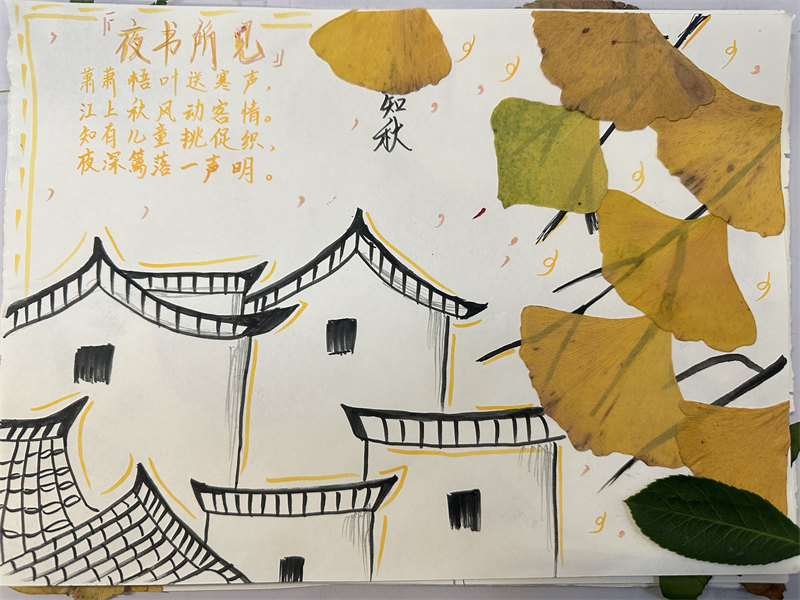 「夜书所见」
萧萧梧叶送寒声,
江上秋风动客情。
知有儿童挑促织,
夜深篱落一声明。
知秋